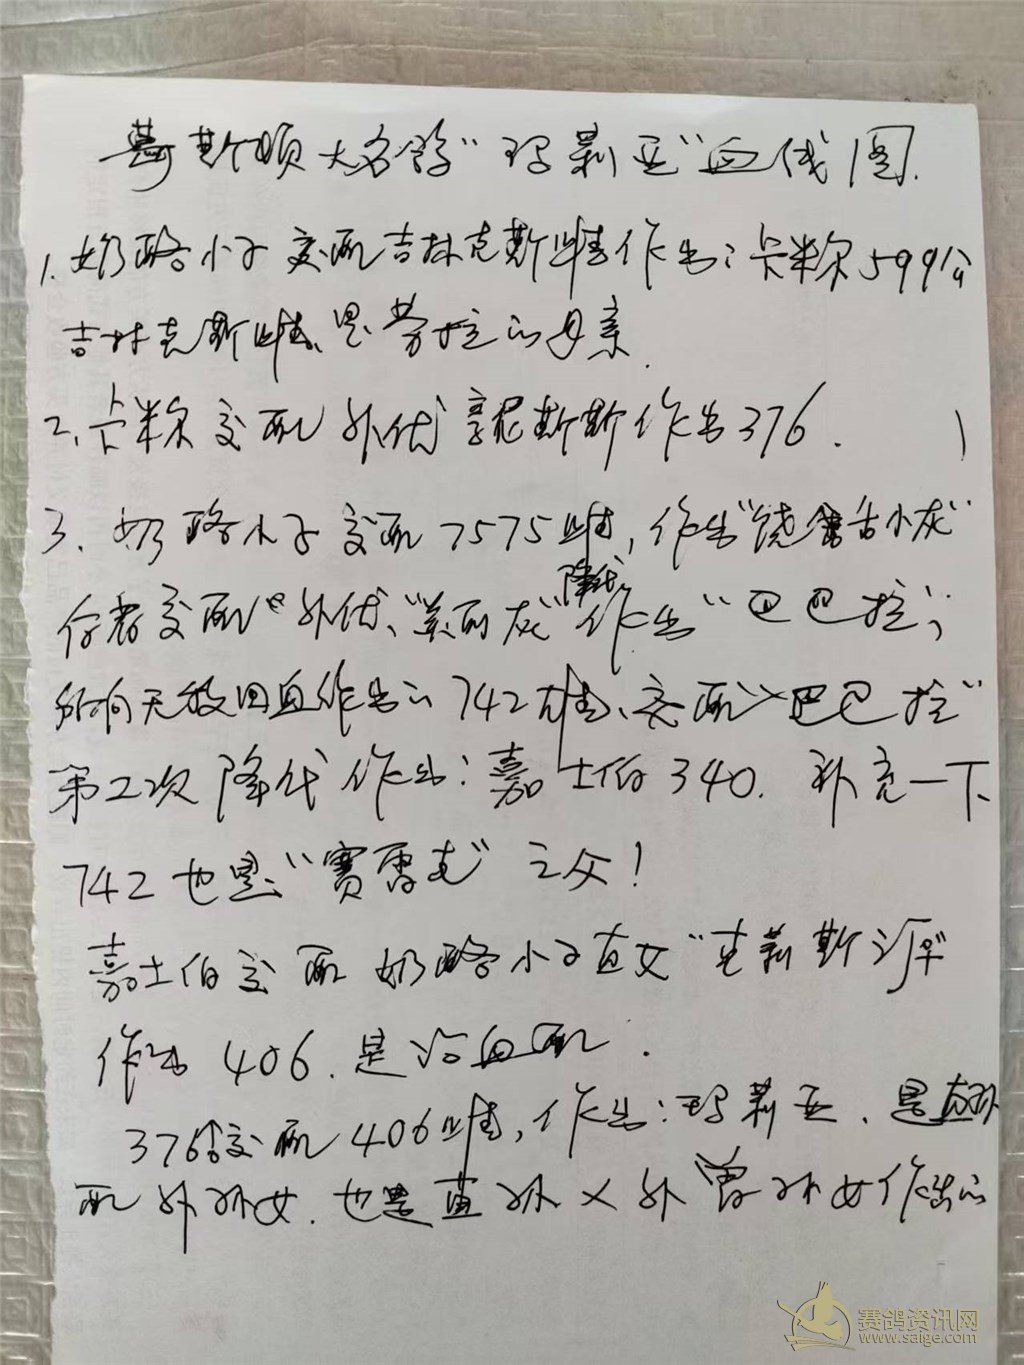 斯顿大名鸽“玛莉亚”血线图.
1.奶酪小子交配吉林克斯雌作出:卡米尔599公
吉林克斯雌、是劳拉的母亲.
2、卡米尔交配外优斯作出376.
3、奶酪小子交配7575雌,作出“饶舌小灰”
交配“外优、“美丽灰”降代作出“巴巴拉”;
天敌回血作出的742雄、交配“巴巴拉”
第二次降代作出:嘉士伯340.补充一下
742也是“赛雷克”之父!
嘉士伯交配奶酪小子直女“克莉斯
作出406.是
376交配406雌,作出:玛莉亚.是直孙
配外孙女.也是直孙×外曾孙女作出的
赛鸽资讯网
www.saige.com